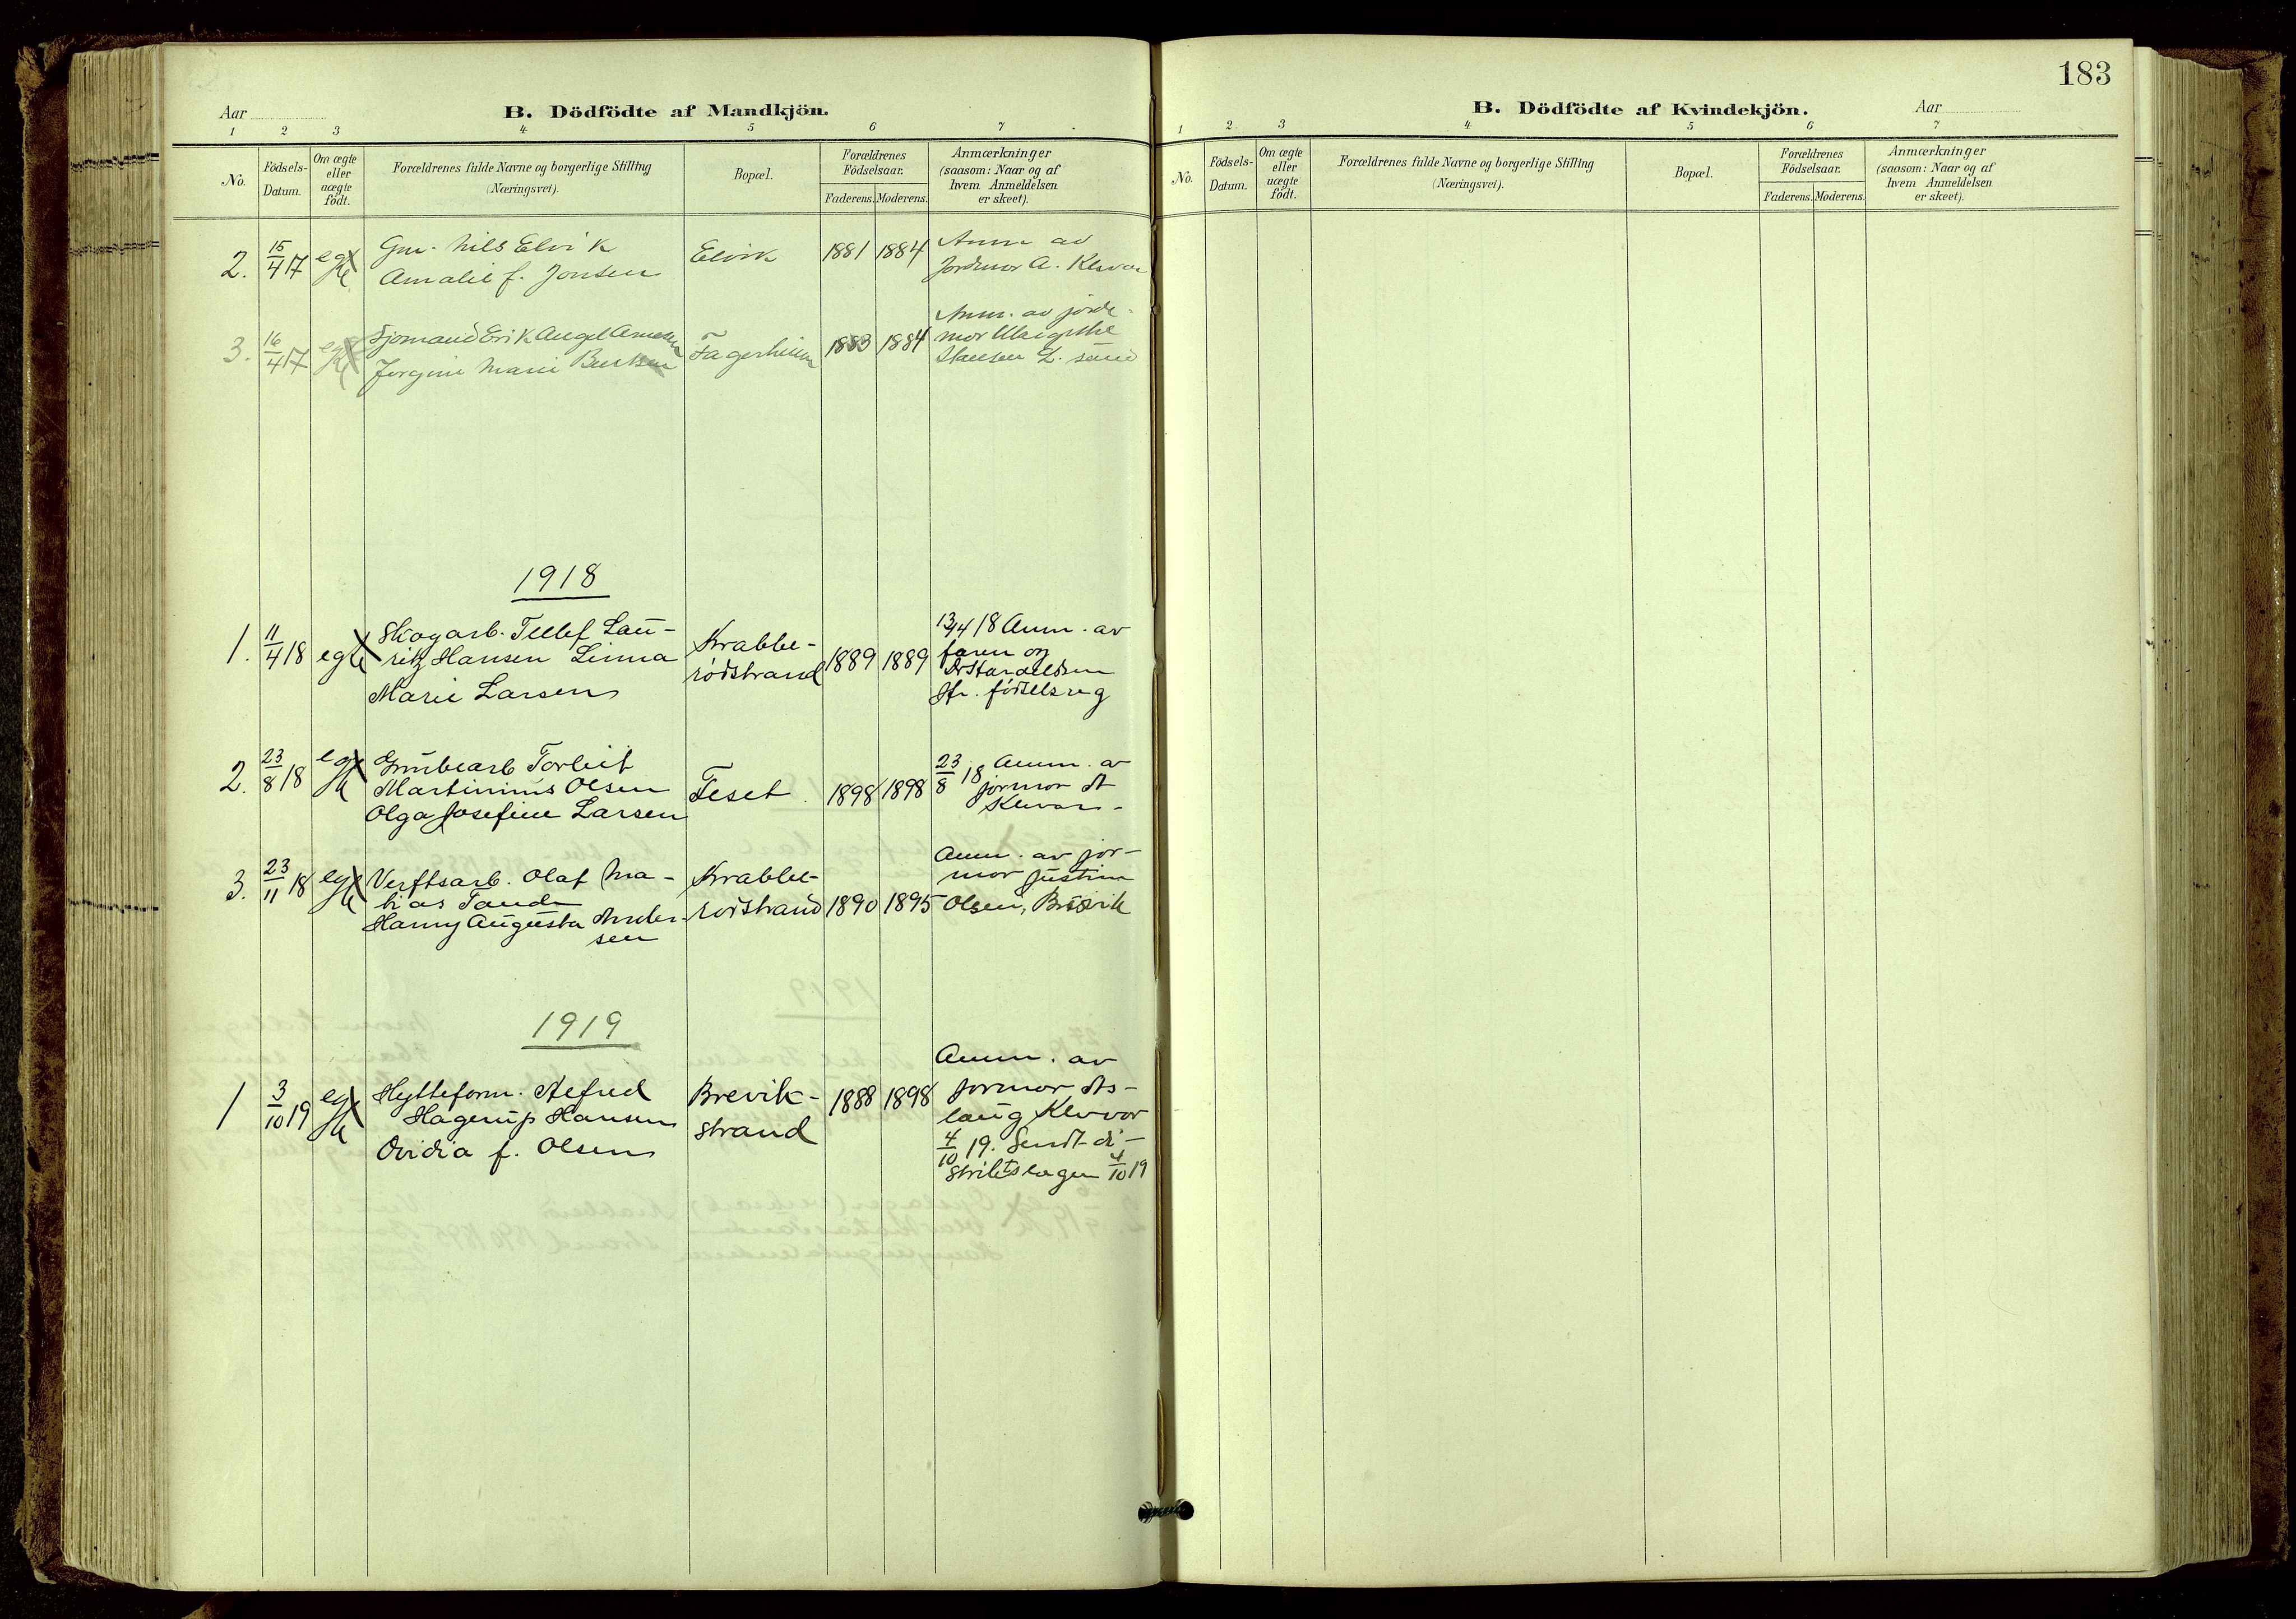 Aar
B. Dödfödte af Mandkjön.
1 2 3 4 5 6 7
No.
Födsels-
Datum.
Om ægte
eller
uægte
födt.
Forældrenes fulde Navne og borgerlige Stilling
(Næringsvei).
Bopæl.
Forældrenes
Födselsaar.
Faderens. Moderens.
Anmærkninger
(saasom: Naar og af
hvem Anmeldelsen
er skeet).
2. 15/4 17 egte
Gm. Nils Elvik
Amalie f. Jonsen
Elvik
1881 1884
Anm av
Jordmor A. Klovar
3. 16/4 17 egte
Sjømand Erik Angel Arnesen
Jørgine Marie
Fagerheim
1883 1884
Anm. av jorde-
mor
Hansen L. sund
1918
1. 11/4 18 egte
Skogarb. Tellef Lau-
ritz Hansen Linna
Marie Larsen
Krabbe-
rødstrand
1889 1889
13/4 18 Anm. av
faren og
Haraldsen
Jfr. fødselsreg
2. 23/8 18 egte
Grubearb Torleif
Martinius Olsen
Olga Josefine Larsen
Feset
1898 1898
23/8 18 Anm. av
jormor A
Klovar
3. 23/11 18 egte
Verftsarb. Olaf Ma-
tias Tande
Hanny Augusta Ander-
sen
Krabbe-
rødstrand
1890 1895
Anm. av jor-
mor Justine
Olsen, Brevik
1919
1 3/10 19 egte
Hytteform. Alfred
Hagerup Hansen
Ovidia f. Olsen
Brevik-
strand
1888 1898
Anm. av
jormor As-
laug Klovar
4/10 19. Sendt di-
striktslægen 4/10 19
183
B. Dödfödte af Kvindekjön.
Aar
1 2 3 4 5 6 7
No.
Födsels-
Datum.
Om ægte
eller
uægte
födt.
Forældrenes fulde Navne og borgerlige Stilling
(Næringsvei).
Bopæl.
Forældrenes
Födselsaar.
Faderens. Moderens.
Anmærkninger
(saasom: Naar og af
hvem Anmeldelsen
er skeet).